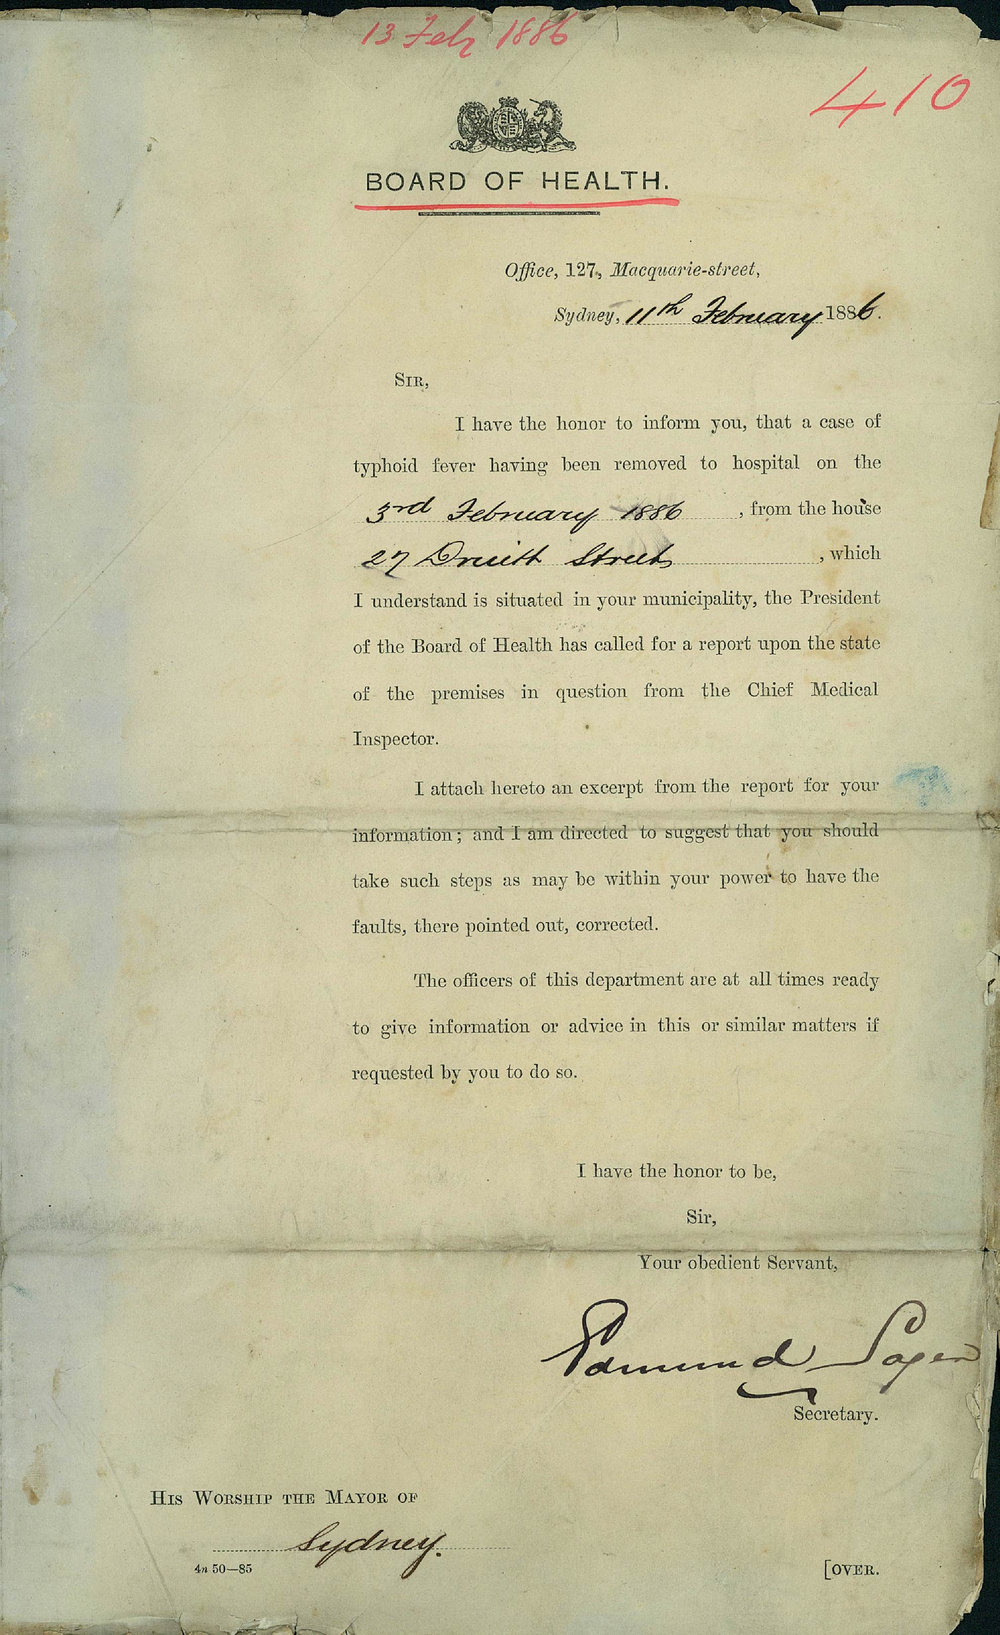 13 Feb 1886
410
BOARD OF HEALTH.
Office, 127, Macquarie-street,
Sydney, 11th February 1886.
SIR,
I have the honor to inform you, that a case of
typhoid fever having been removed to hospital on the
3rd February 1886, from the house
27 Druitt Street, which
I understand is situated in your municipality, the President
of the Board of Health has called for a report upon the state
of the premises in question from the Chief Medical
Inspector.
I attach hereto an excerpt from the report for your
information; and I am directed to suggest that you should
take such steps as may be within your power to have the
faults, there pointed out, corrected.
The officers of this department are at all times ready
to give information or advice in this or similar matters if
requested by you to do so.
I have the honor to be,
Sir,
Your obedient Servant,
Edmund Sager
Secretary.
HIS WORSHIP THE MAYOR OF
Sydney.
4n 50—85
[OVER.